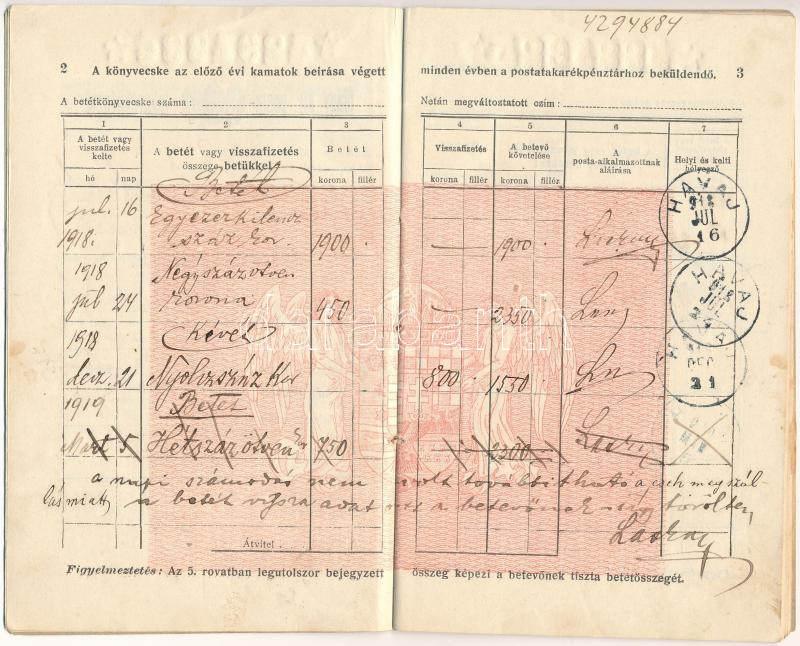 4294884
2 A könyvecske az előző évi kamatok beirása végett minden évben a postatakarékpénztárhoz beküldendő. 3
A betétkönyvecske száma: Netán megváltoztatott czim:
1 2 3 4 5 6 7
A betét vagy visszafizetés kelte
A betét vagy visszafizetés összege betükkel
Betét
Visszafizetés
A betevő követelése
A posta-alkalmazottnak aláirása
Helyi és kelti bélyegző
hó nap korona fillér korona fillér korona fillér
Betét
jul. 16 Egyezerkilencz
1918. száz kor. 1900 1900
HAVAJ 918 JUL 16
1918 Négyszázötven
jul 24 korona 450 2350
HAVAJ 918 JUL 24
1918 Kivét
decz. 21 Nyolczszáz kor 800 1550
DEC 21
1919 Betét
Mart 5 Hétszázötven kor 750 2300
a napi számadás nem volt továbbitható a cseh megszál-
lás miatt a betét vissza adatott a betevőnek
Átvitel
Figyelmeztetés: Az 5. rovatban legutolszor bejegyzett összeg képezi a betevőnek tiszta betétösszegét.
darabanth